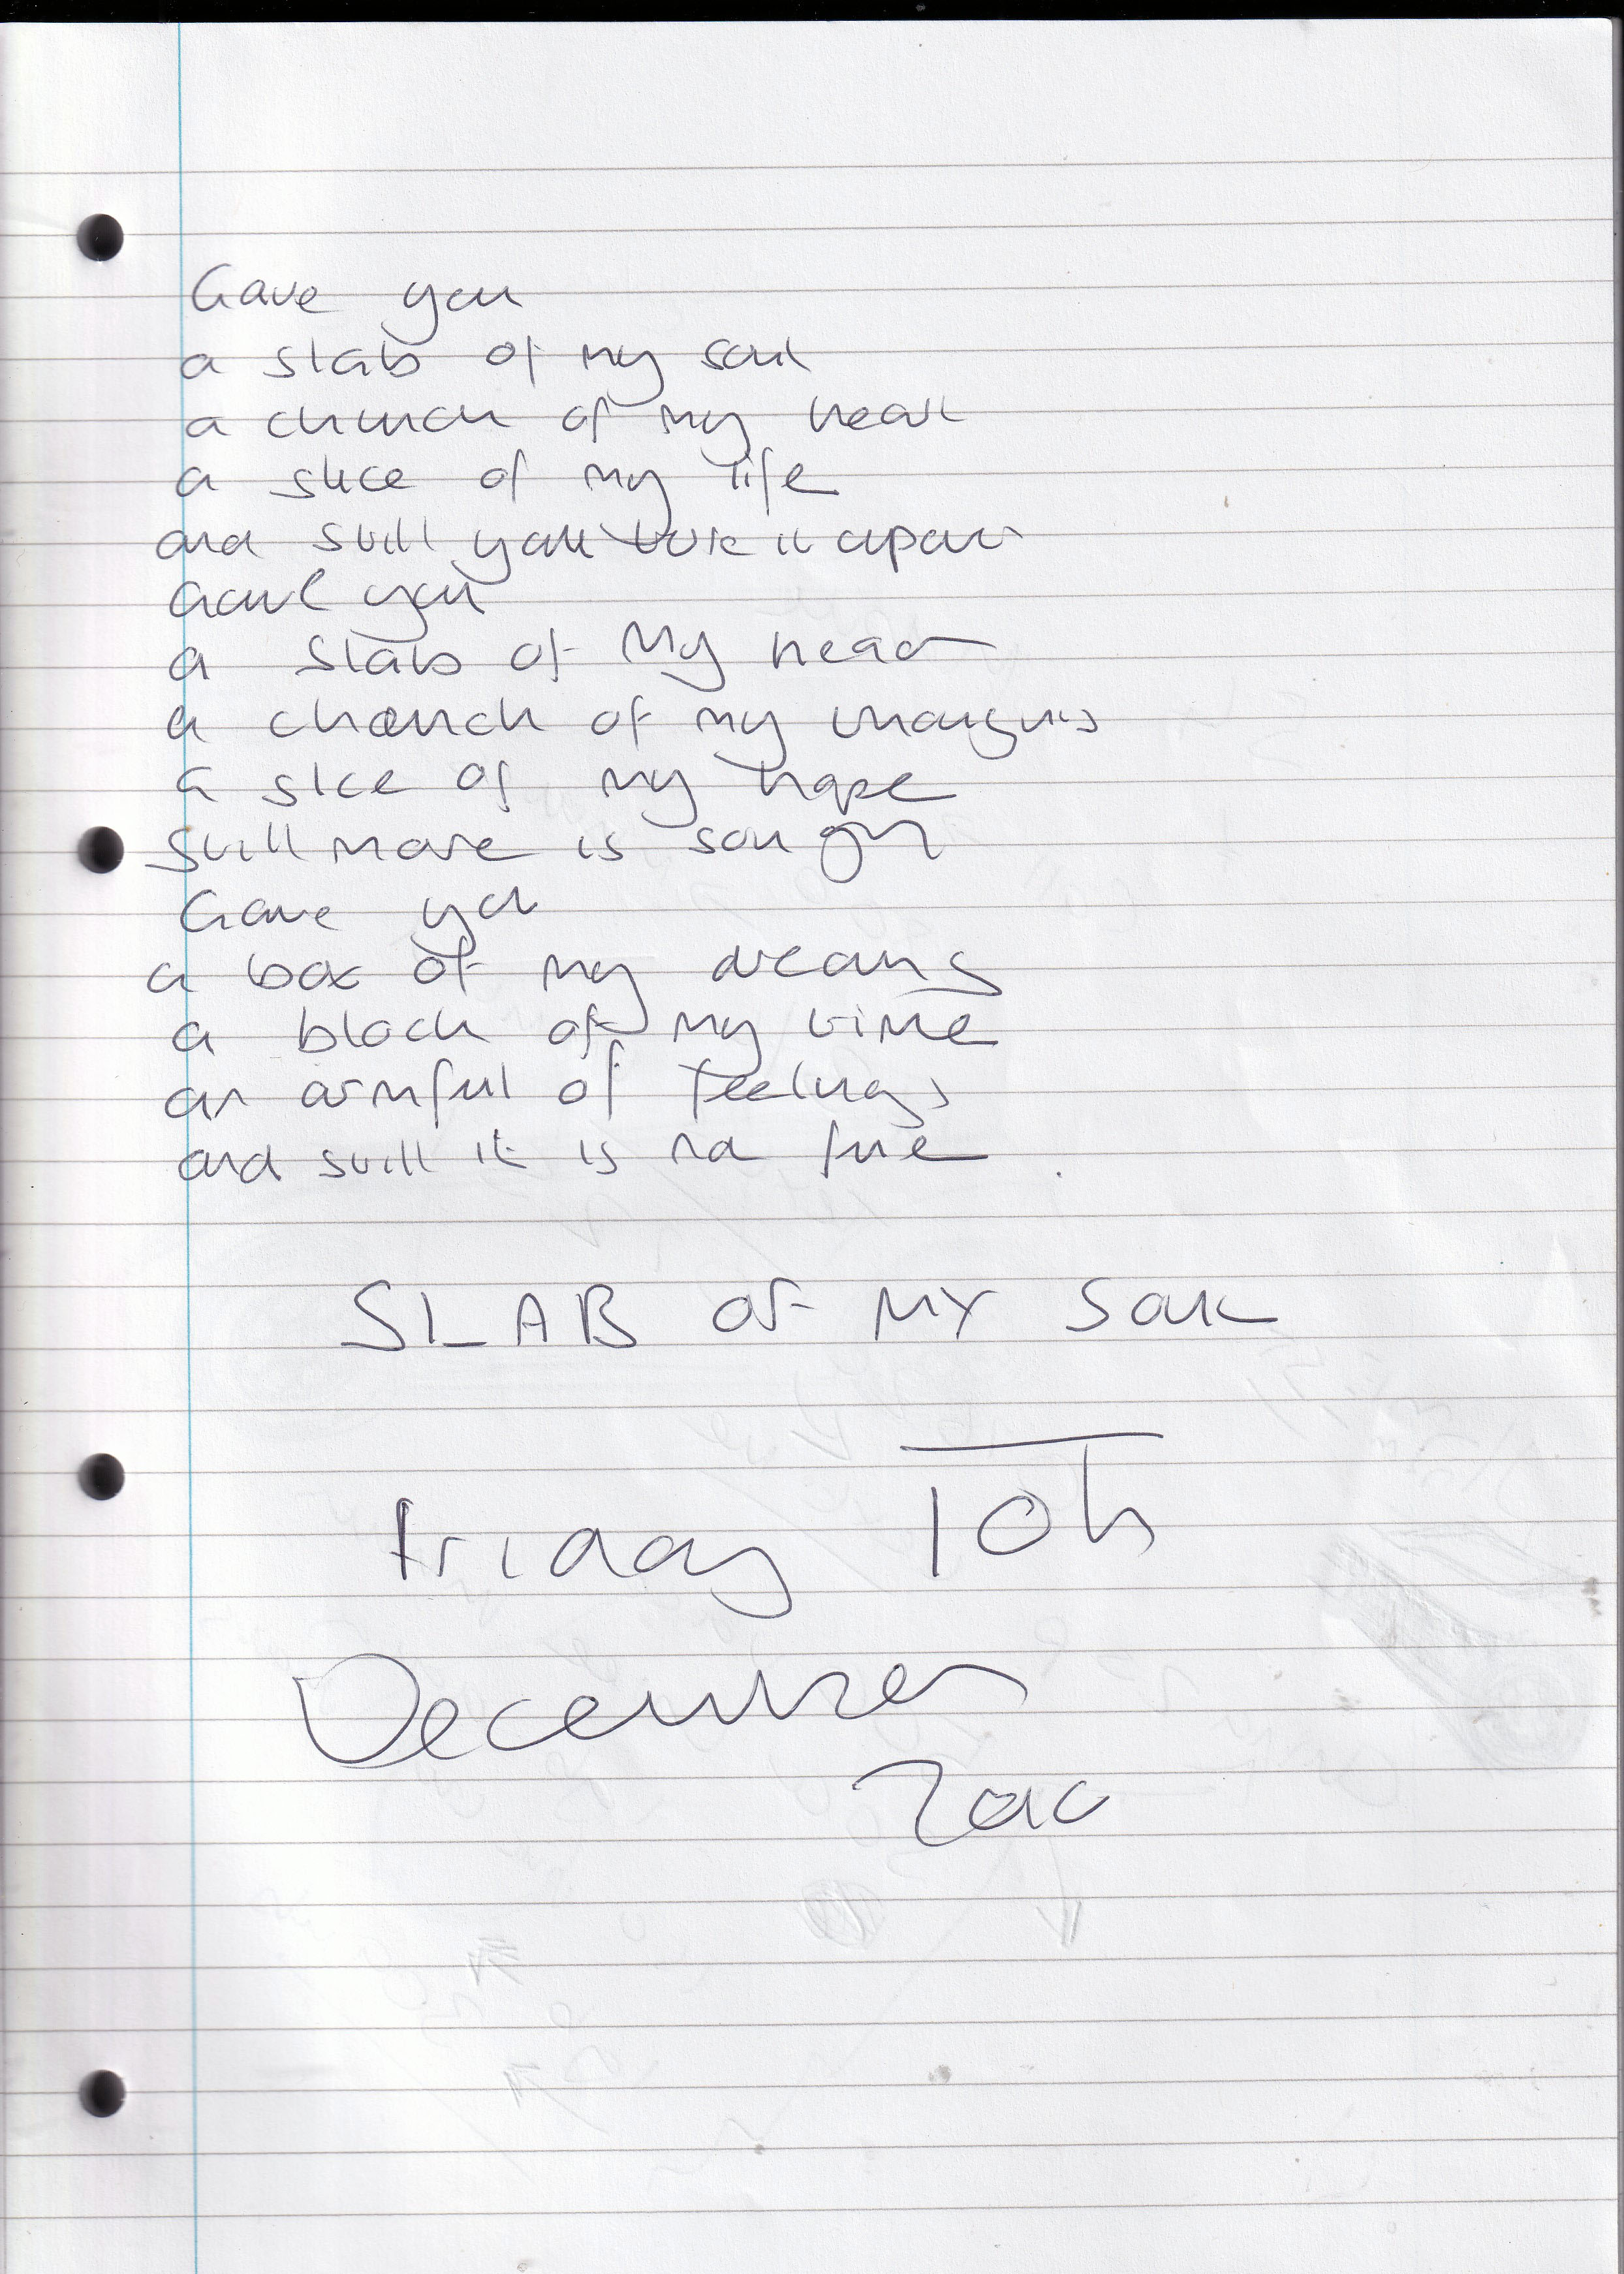 Gave you
a slab of my soul
a chunck of my heart
a slice of my life
and still you it apart
Gave you
a slab of my head
a chunck of my thoughts
a slice of my hope
still more is sought
Gave you
a box of my dreams
a block of my time
an armful of feelings
and still it is no
SLAB OF MY SOUL
Friday 10th
December
Zac